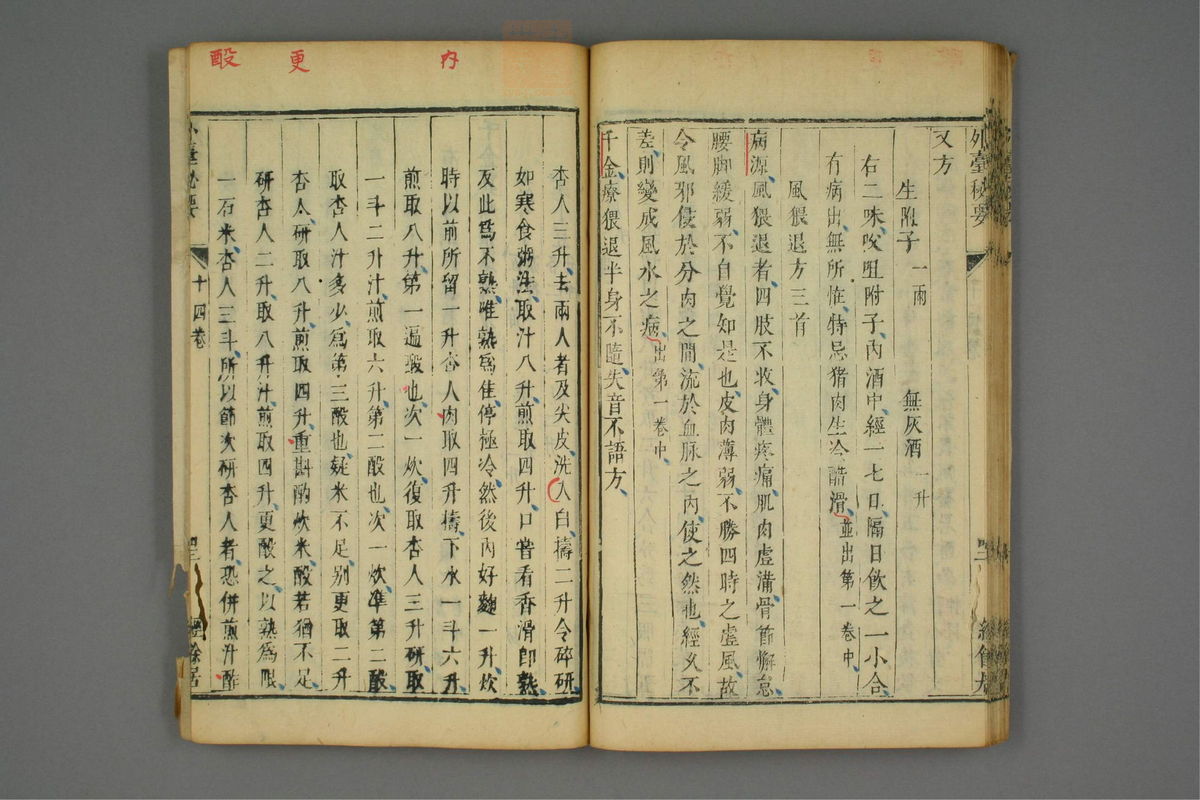 外臺秘要
又方
生附子一兩 無灰酒一升
右二味㕮咀附子内酒中經一七日隔日飲之一小合
有病出無所恠特忌猪肉生冷醋滑並出第一卷中
風猥退方三首
病源風猥退者四肢不收身體疼痛肌肉虛滿骨節懈怠
腰脚緩弱不自覺知是也皮肉薄弱不勝四時之虛風故
令風邪侵於分肉之間流於血脉之内使之然也經久不
差則變成風水之病出第一卷中
千金療猥退半身不隨失音不語方
内
更
酘
杏人三升去兩人者及尖皮洗入臼擣二升令碎研
如寒食粥法取汁八升煎取四升口嘗看香滑即熟
友此爲不熟唯熟爲佳停極冷然後内好麯一升炊
時以前所留一升杏人肉取四升擣下水一斗六升
煎取八升第一遍酘也次一炊復取杏人三升研取
一斗二升汁煎取六升第二酘也次一炊準第二酘
取杏人汁多少爲第三酘也疑米不足别更取二升
杏人研取八升煎取四升重斟酌炊米酘若猶不足
研杏人二升取八升汁煎取四升更酘之以熟爲限
一石米杏人三斗所以節次研杏人者恐併煎汁酢
臺秘要
十四卷
經餘居